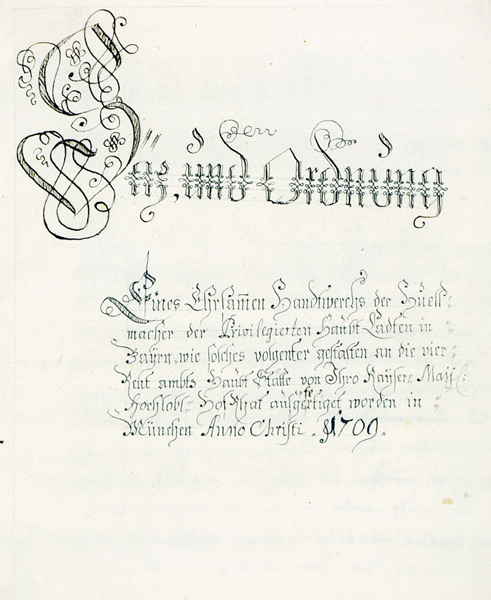 Saz, und Ordnung
Eines Ehrsamen Handtwerchs der Huett=
macher der Privilegierten Haubt Ladten in
Bayrn, wie solches volgenter gestalten an die vier
Rent ambts Haubt Stätte von Ihro Kayser: May:
Hochlobl: Hof Rhat ausgefertiget worden in
München Anno Christi. 1709.